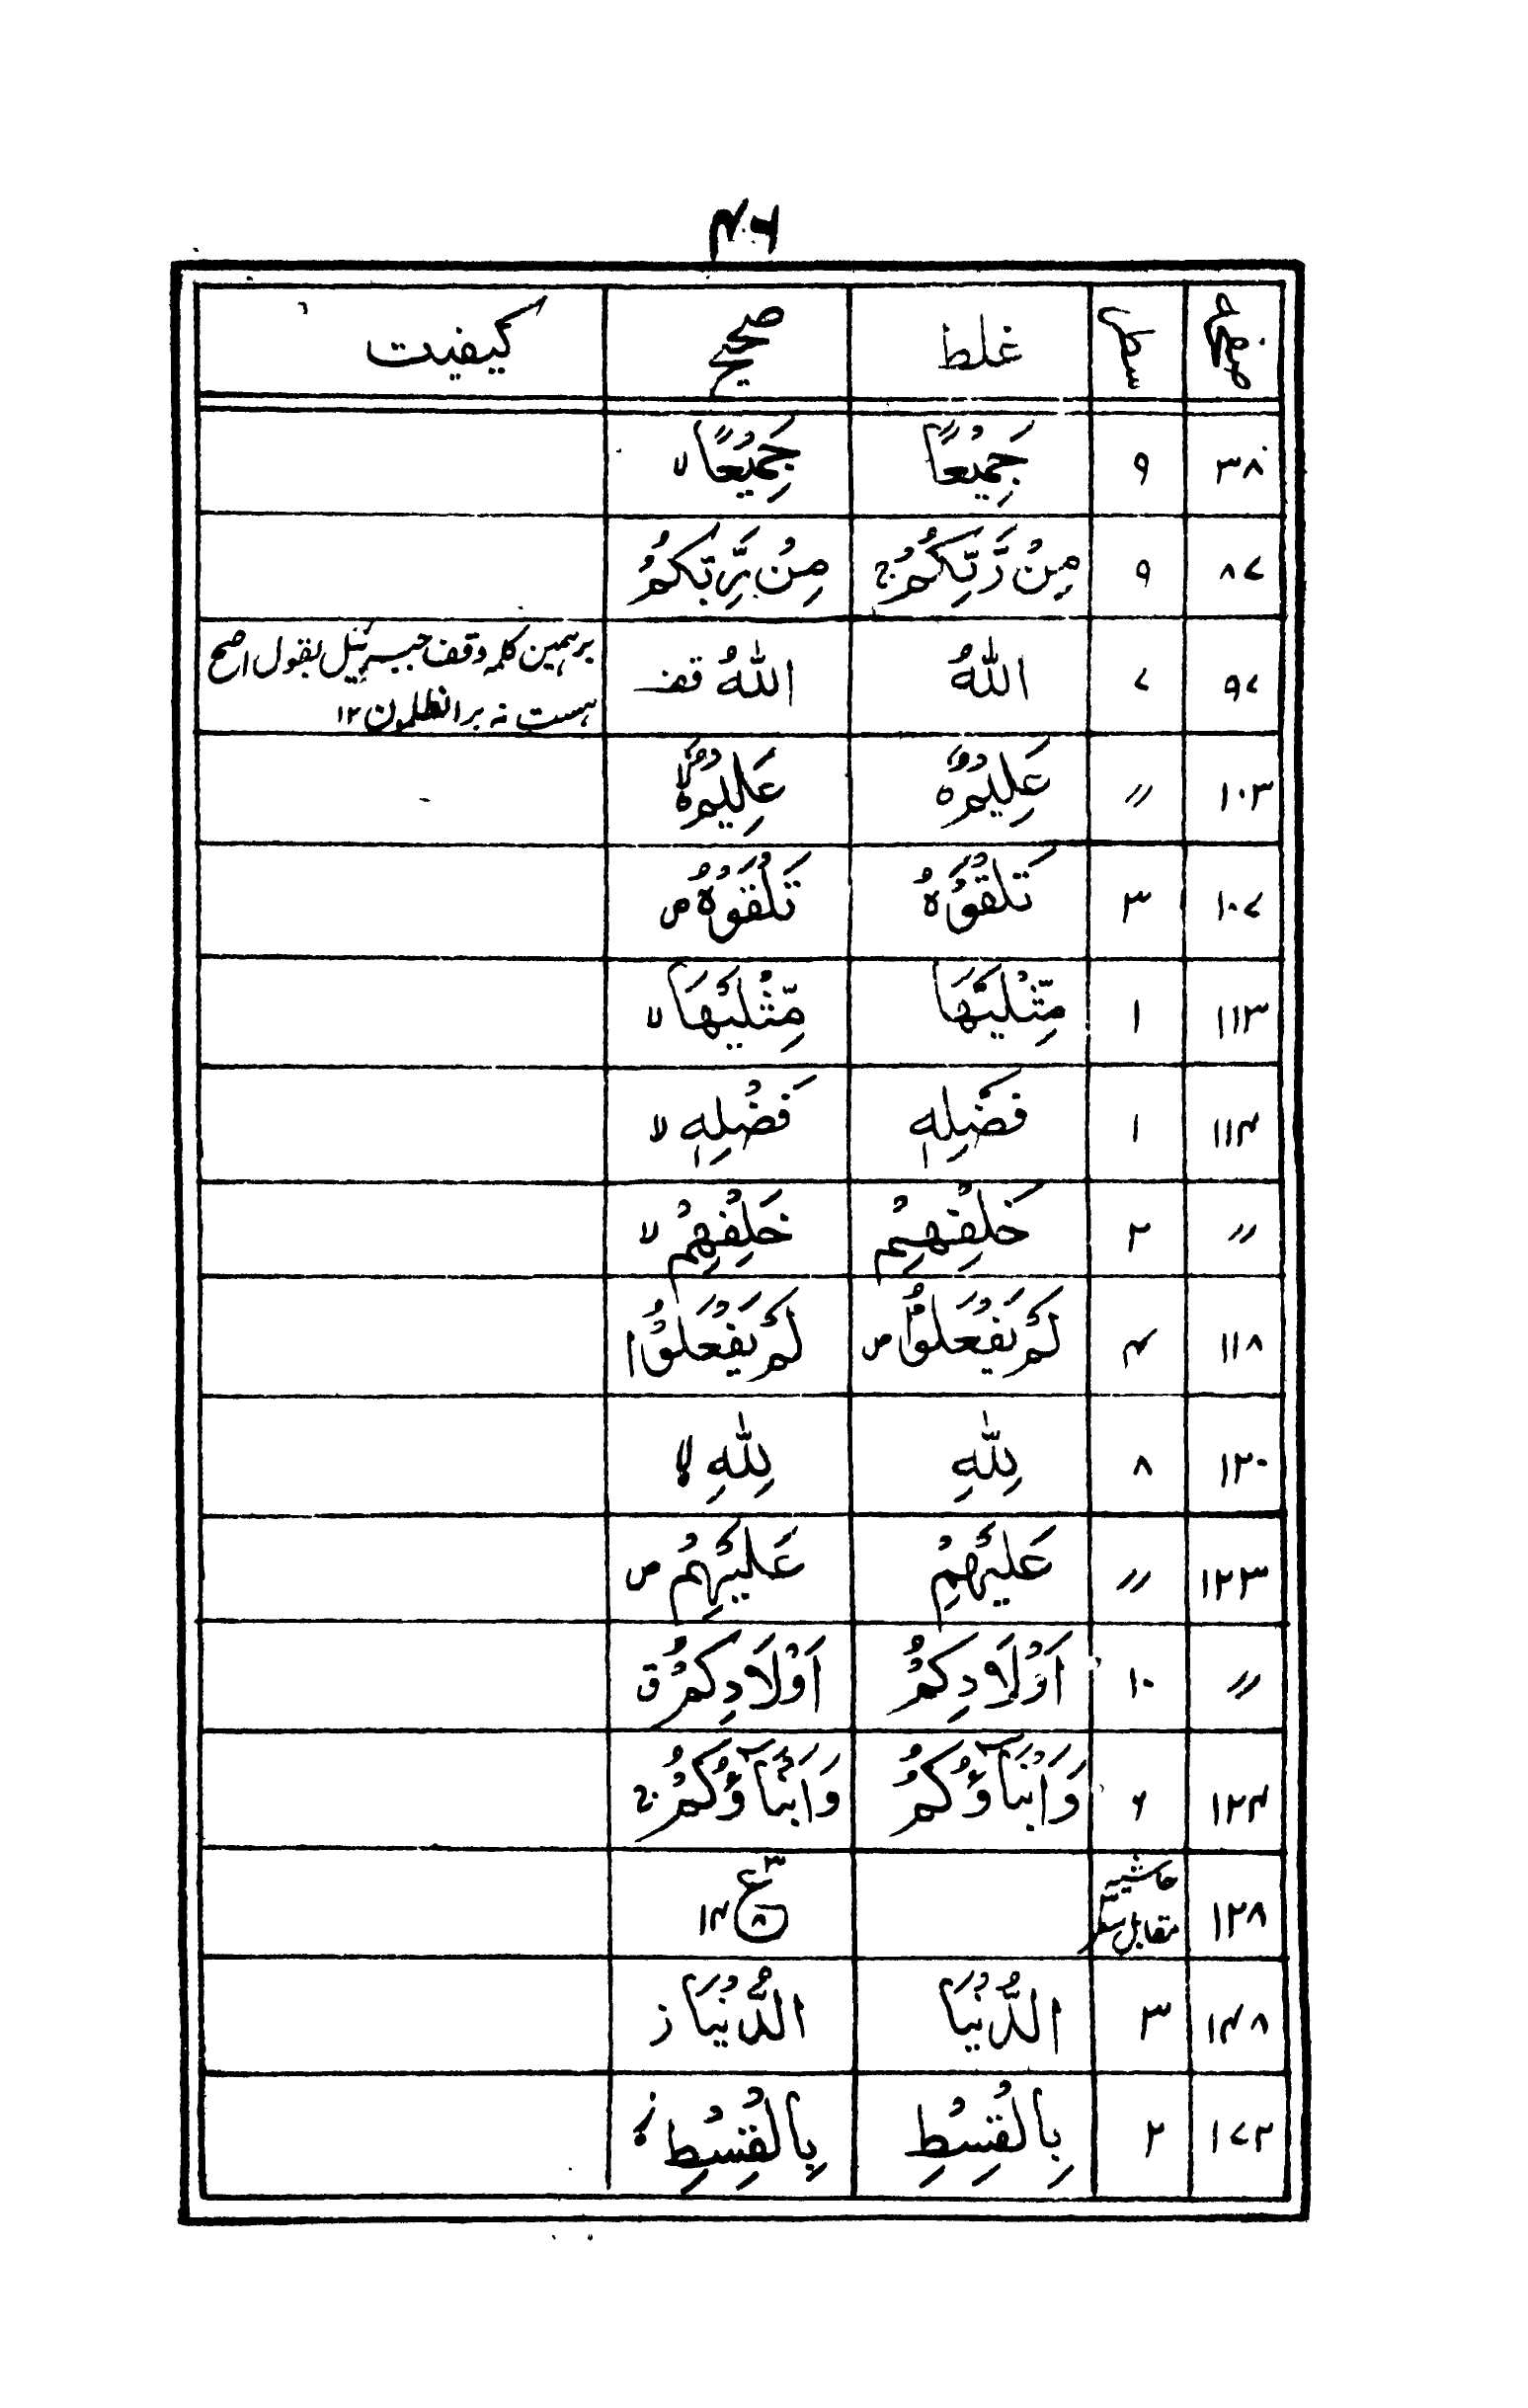 ۴۶
صفحہ سطر غلط صحیح کیفیت
۳۸ ۹ جَمِيْعًا جَمِيْعًا لا
۸۷ ۹ مِنْ رَّبِّكُمْ ج مِنْ رَّبِّكُمْ
۹۷ ۷ اللّٰهُ اللّٰهُ قف برہمین کلمہ وقف جبرئیل بقول اصح
ہست نہ بر انظلمون ۱۲
۱۰۳ // عَلِيْمٌ ه عَلِيْمٌ ه لا
۱۰۷ ۳ تَلْقَوْهُ تَلْقَوْهُ ص
۱۱۳ ۱ مِّثْلَيْهَا مِّثْلَيْهَا لا
۱۱۴ ۱ فَضْلِهٖ فَضْلِهٖ لا
// ۲ خَلْفِهِمْ خَلْفِهِمْ لا
۱۱۸ ۴ لَمْ يَفْعَلُوْا ص لَمْ يَفْعَلُوْا
۱۲۰ ۸ لِلّٰهِ لِلّٰهِ لا
۱۲۳ // عَلَيْهِمْ عَلَيْهِمْ ص
// ۱۰ اَوْلَادِكُمْ اَوْلَادِكُمْ ق
۱۲۴ ۶ وَاَبْنَآؤُكُمْ وَاَبْنَآؤُكُمْ ج
۱۲۸ حاشیہ مقابل سطر ۳ ع ۸ ۱۴
۱۴۸ ۳ الدُّنْيَا الدُّنْيَا ز
۱۷۲ ۲ بِالْقِسْطِ بِالْقِسْطِ ز